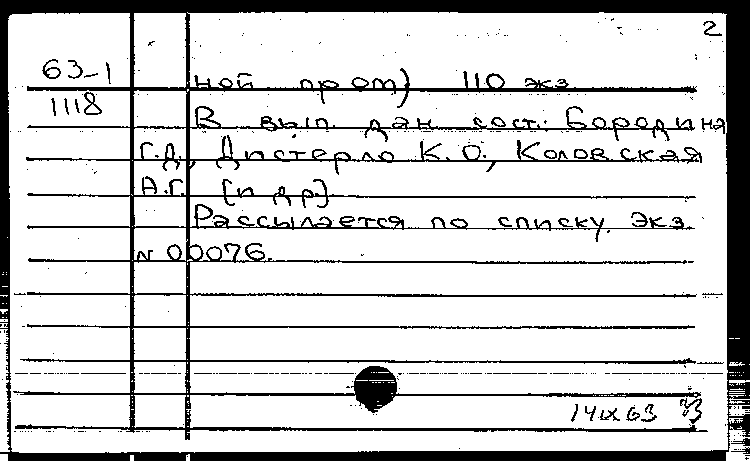 2
63-1
1118
ной пром) 110 экз
В вып дан сост.: Бородина
Г.Д., Дистерло К.О., Коловская
А.Г. [и др.]
Рассылается по списку. Экз.
N 00076.
14IX63